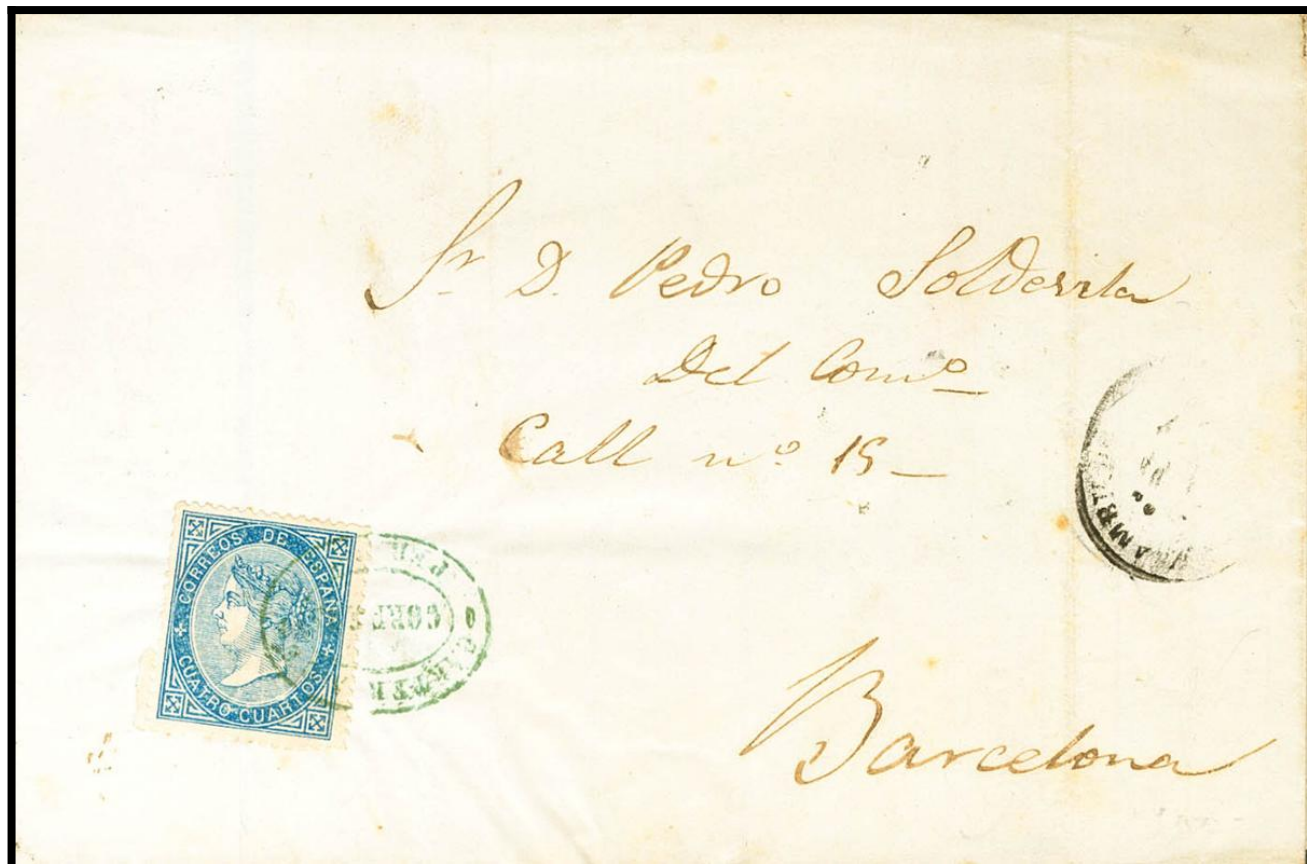 Sr. D. Pedro Soldevila
Del Como
Call nº 15
Barcelona
CORREOS DE ESPAÑA
CUATRO CUARTOS